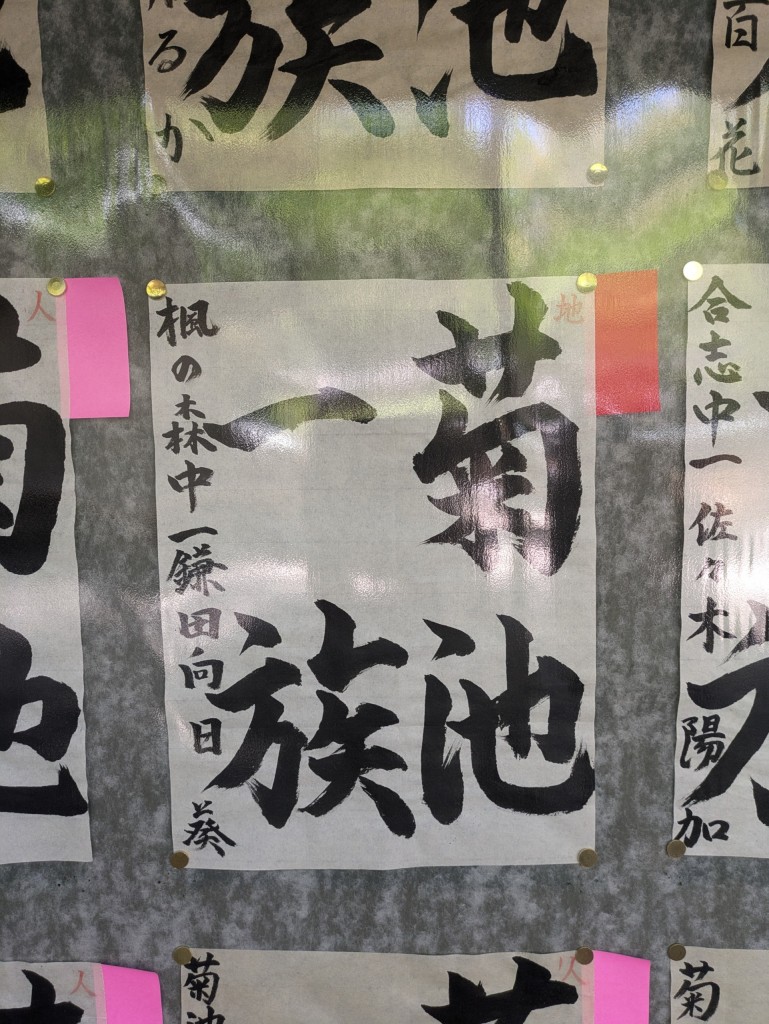 百花
るか
族
池
地
菊池
一族
楓の森中一鎌田向日葵
人
合志中一佐々木陽加
人
菊池
菊